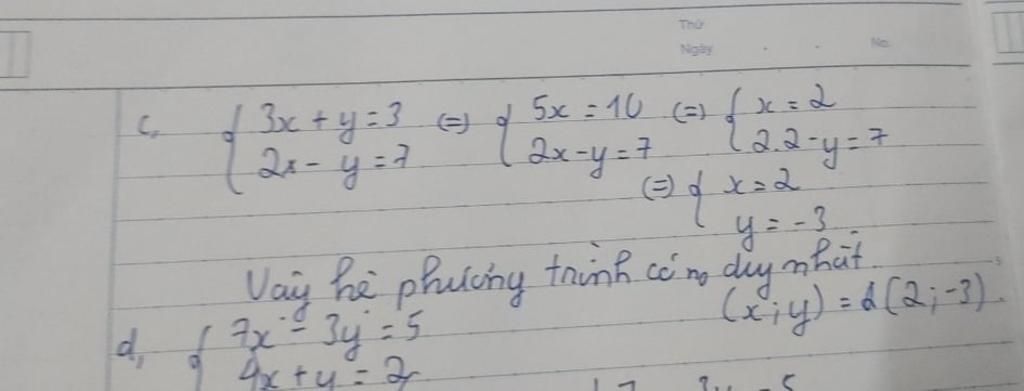 Thứ
Ngày . . No.
c, { 3x + y = 3 (=) { 5x = 10 (=) { x = 2
2x - y = 7 2x - y = 7 2.2 - y = 7
(=) { x = 2
y = -3
Vậy hệ phương trình có no duy nhất
(x; y) = d(2; -3).
d, { 7x - 3y = 5
4x + y = 2